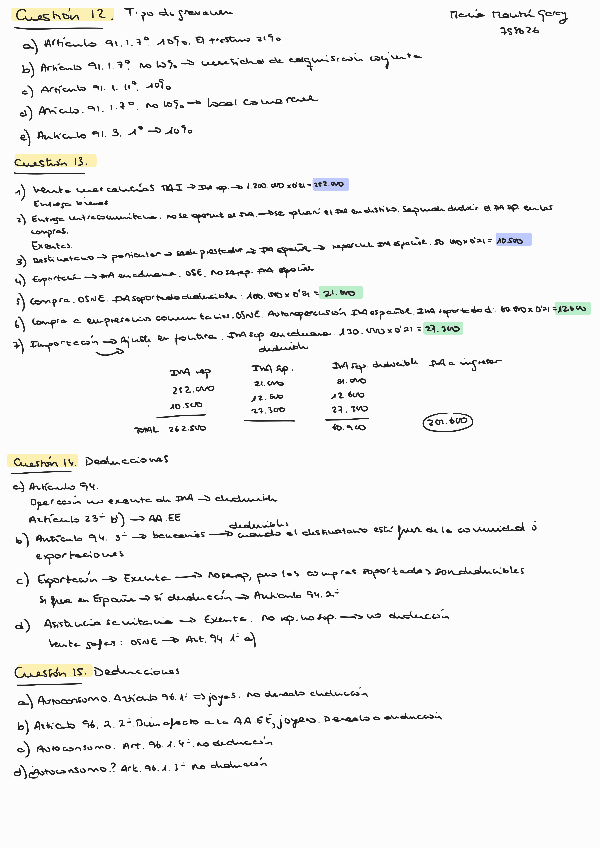 Cuestión 12. Tipo de gravamen
María Gary
a) Artículo 91.1.7º 10%. El trastero 21%
b) Artículo 91.1.7º. No 10% → de adquisición conjunta
c) Artículo 91.1.11º. 10%
d) Artículo. 91.1.7º. No 10% → local comercial
e) Artículo 91.3.1º → 10%
Cuestión 13.
1) Venta mercancías TAI → IVA rep. → 1.200.000 x 0'21 = 252.000
Entrega bienes
2) Entrega intracomunitaria. No se repercute el IVA → se aplicará el IVA en destino. Se puede deducir el IVA sop. en las
compras.
Exentas.
3) Destinatario → particular → sede prestador → IVA español → repercute IVA español. 50.000 x 0'21 = 10.500
4) Exportación → IVA en aduana. OSE. No se rep. IVA español
5) Compra. OSNE. IVA soportado deducible: 100.000 x 0'21 = 21.000
6) Compra a empresario comunitario. OSNE. Autorepercusión IVA español. IVA soportado d: 60.000 x 0'21 = 12.600
7) Importación → Ajuste en frontera. IVA sop en aduana. 130.000 x 0'21 = 27.300
deducible
IVA rep IVA sop. IVA sop deducible IVA a ingresar
252.000 21.000 21.000
10.500 12.600 12.600
27.300 27.300
TOTAL 262.500 60.900 201.600
Cuestión 14. Deducciones
a) Artículo 94.
Operación no exenta de IVA → deducible
Artículo 23º b') → AA.EE
deducibles
b) Artículo 94. 3º → bancarios → cuando el destinatario esté fuera de la comunidad ó
exportaciones
c) Exportación → Exenta → no se rep, pero las compras soportadas son deducibles
Si fuera en España → sí deducción → Artículo 94.2º
d) Asistencia sanitaria → Exenta. No rep. no sop. → no deducción
Venta gafas: OSNE → Art. 94 1º a)
Cuestión 15. Deducciones
a) Autoconsumo. Artículo 96.1º => joyas. No derecho deducción
b) Artículo 96. 2. 2º Bien afecto a la AA EE, joyero. Derecho a deducción
c) Autoconsumo. Art. 96.1.4º. no deducción
d) ¿Autoconsumo? Art. 96.1.3º No deducción